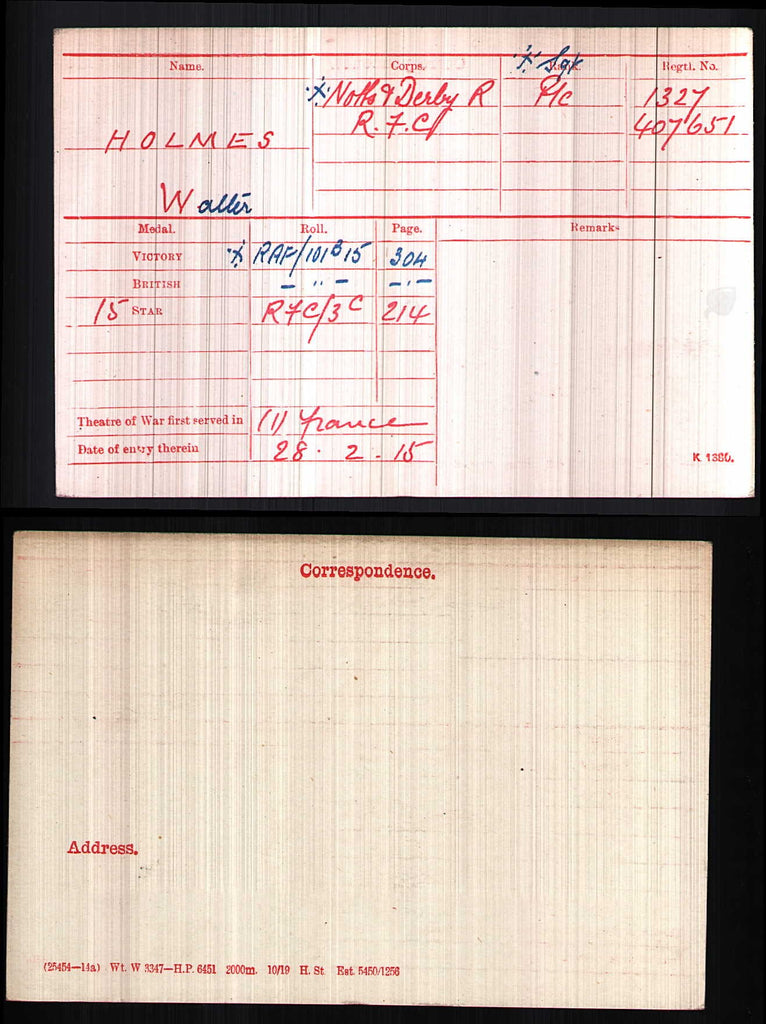 Name. Corps. Rank. Regtl. No.
※ Sgt
※ Notts & Derby R Pte 1327
HOLMES R.F.C. 407651
Walter
Medal. Roll. Page. Remarks
VICTORY ※ RAF/101B15 304
BRITISH – " – – " –
15 STAR RFC/3C 214
Theatre of War first served in (1) France
Date of entry therein 28. 2. 15
K. 1380.
Correspondence.
Address.
(25454—14a) Wt. W 3347—H.P. 6451 2000m. 10/19 H. St Est. 5450/1256